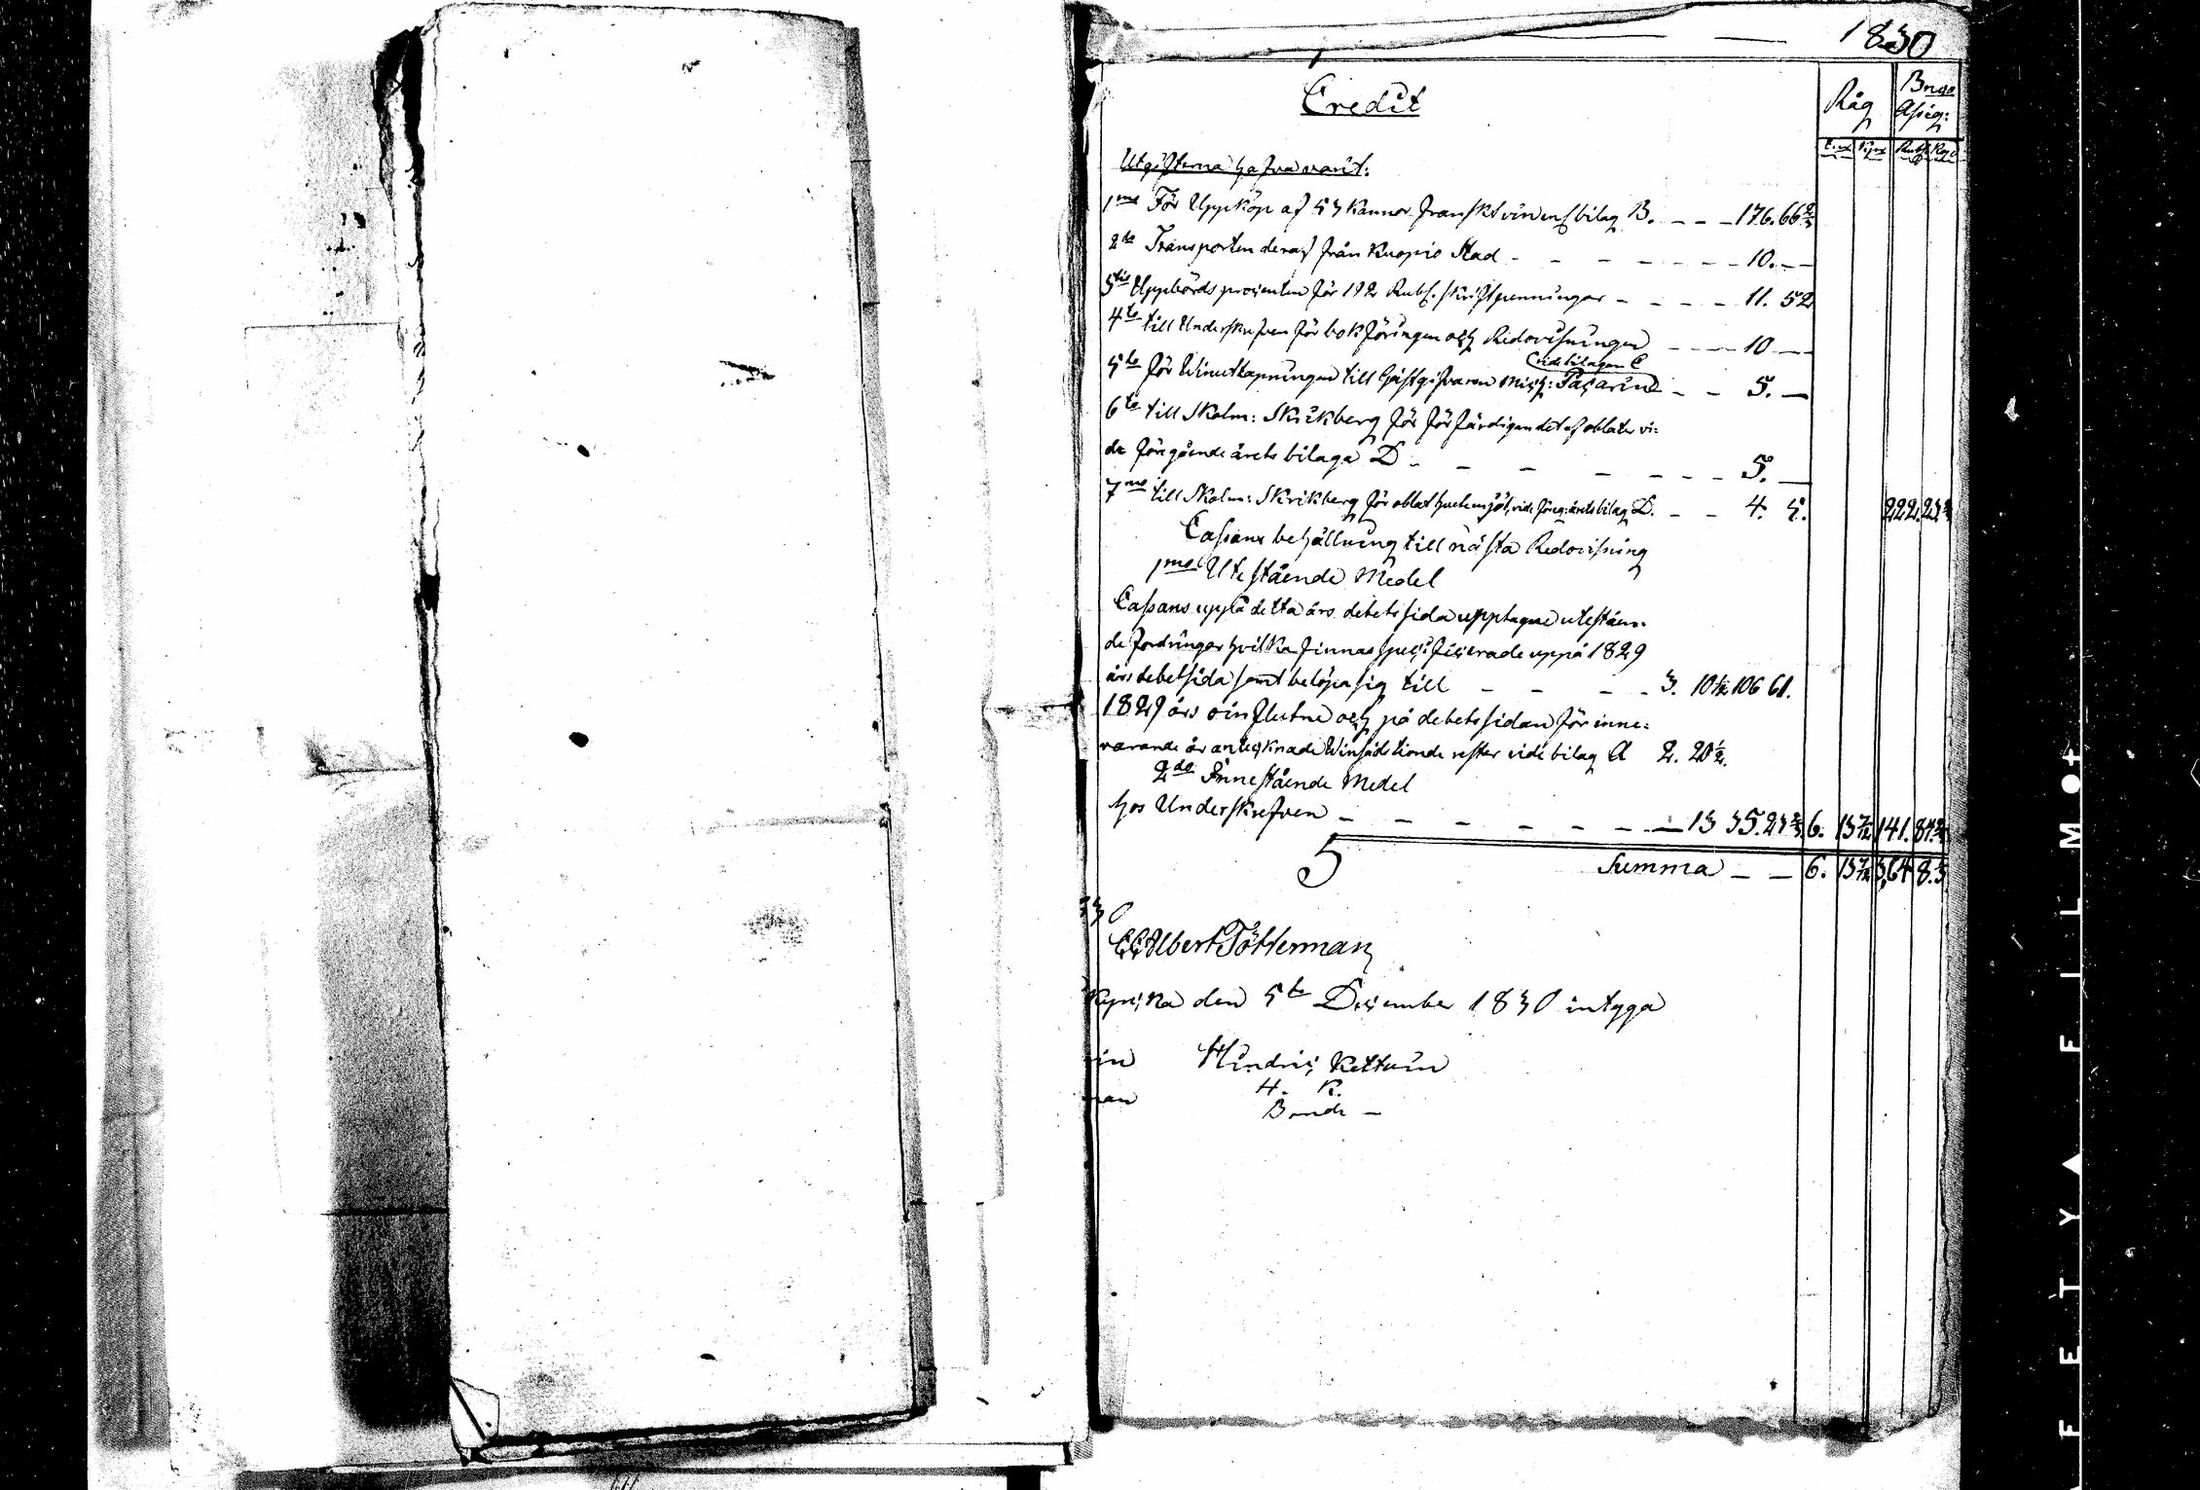 1830
Credit
Råg
Bnco Assig:
Utgifterna hafva varit:
1mo För Uppköp af 53 Kannor franskt vin enl bilag B. - - - 176. 66 2/3
2do Transporten deraf från Kuopio Stad - - - - - - - 10. —
3tio Uppbörds procenten för 192 Rub. skriftpenningar - - - - 11. 52
4to till Underskrefven för bokföringen och Redovisningen - - - 10 —
(vide bilagan C
5to för Winutkapningen till Gästgifvaren Mich: - - 5. —
6to till Skolm: Skrikberg för förfärdigandet af oblater vi-
de föregående årets bilaga D - - - - - - - 5. —
7mo till Skolm: Skrikberg för oblat hvetemjöl, vide föreg: årets bilag D. - - 4. 5. 222. 23 2/3
Cassans behållning till nästa Redovisning
1mo Utestående Medel
Cassans uppå detta års debetssida upptagne utestäen-
de fordringar hvilka finnas specificerade uppå 1829
års debetsida samt belöpa sig till - - - - 3. 10 1/12 106 61.
1829 års oinflutne och på debetssidan för inne-
varande år antecknade Winsäds tionde rester vide bilag A 2. 20 1/2.
2do Innestående Medel
hos Underskrefven - - - - - - - 13 35. 23 2/3 6. 13 7/12 141. 84 2/3
Summa - - 6. 13 7/12 364 8. 3
5
C C Albert Tötterman
Kyrcka den 5te December 1830 intyga
in Hindric Kettuin
H. K.
man Bonde -
F E T Y ▲ F I L M